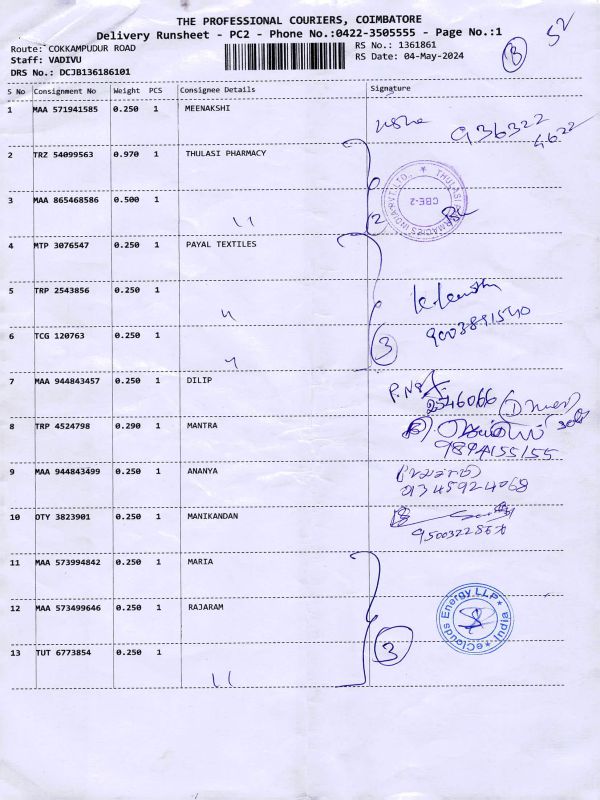 THE PROFESSIONAL COURIERS, COIMBATORE
Delivery Runsheet - PC2 - Phone No.:0422-3505555 - Page No.:1
Route: COKKAMPUDUR ROAD RS No.: 1361861
Staff: VADIVU RS Date: 04-May-2024
DRS No.: DCJB136186101
13 52
S No Consignment No Weight PCS Consignee Details Signature
1 MAA 571941585 0.250 1 MEENAKSHI
usha 936322
4622
2 TRZ 54099563 0.970 1 THULASI PHARMACY
THULASI PHARMACIES INDIA PVT. LTD., CBE-2
3 MAA 865468586 0.500 1 〃
2
4 MTP 3076547 0.250 1 PAYAL TEXTILES
5 TRP 2543856 0.250 1 〃
9003891540
6 TCG 120763 0.250 1 〃
3
7 MAA 944843457 0.250 1 DILIP
2546066
8 TRP 4524798 0.290 1 MANTRA
9894155155
9 MAA 944843499 0.250 1 ANANYA
9345924068
10 OTY 3823901 0.250 1 MANIKANDAN
11 MAA 573994842 0.250 1 MARIA
12 MAA 573499646 0.250 1 RAJARAM
eClouds Energy LLP India
13 TUT 6773854 0.250 1 〃
3